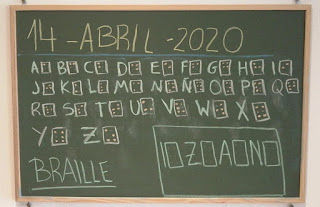 14-ABRIL-2020
A B C D E F G H I
J K L M N Ñ O P Q
R S T U V W X
Y Z
BRAILLE
I Z A N